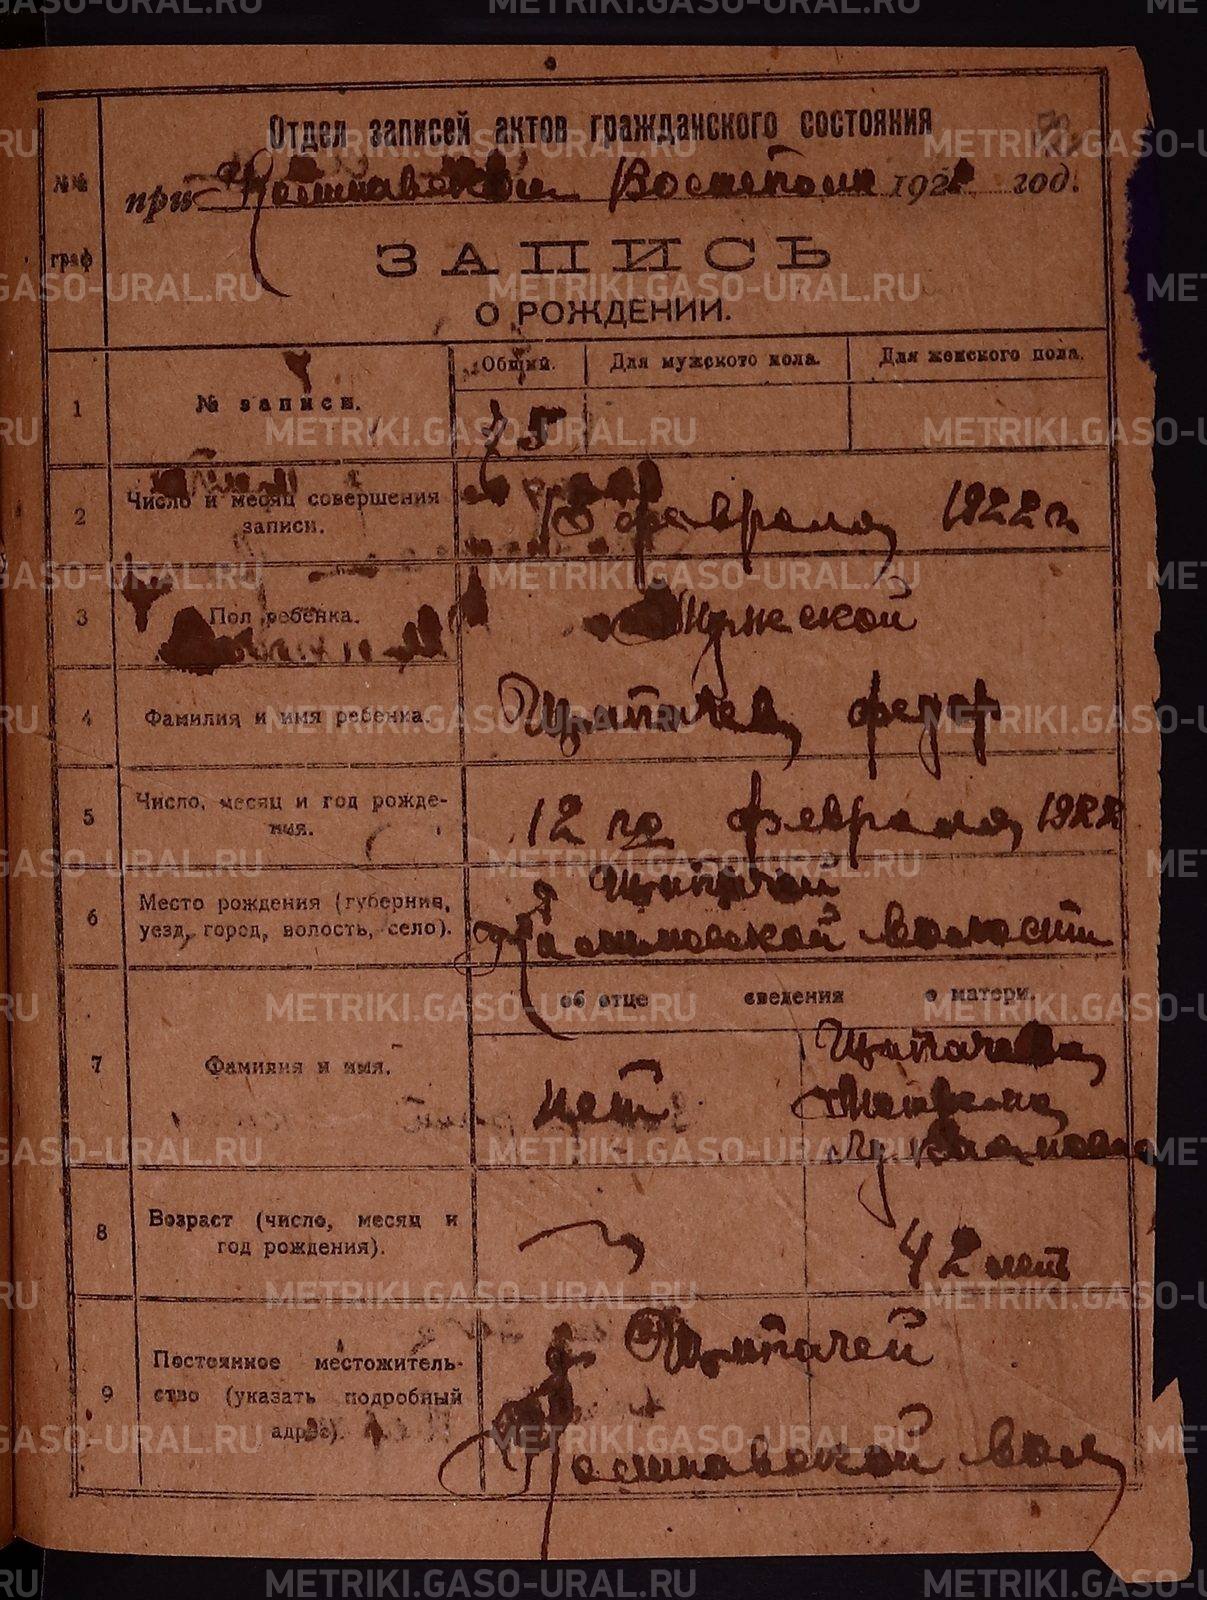 Отдел записей актов гражданского состояния
№№ граф
при 192 год.
ЗАПИСЬ
О РОЖДЕНИИ.
Общий. Для мужского пола. Для женского пола.
1 № записи. 75
2 Число и месяц совершения записи. февраля 1922 г
3 Пол ребенка. Мужской
4 Фамилия и имя ребенка. Щипачев Федор
5 Число, месяц и год рождения. 12 го февраля 1922
6 Место рождения (губерния, д Щипачей
уезд, город, волость, село). волости
об отце сведения о матери.
7 Фамилия и имя. нет Щипачева
8 Возраст (число, месяц и год рождения). 42 лет
9 Постоянное местожитель- д Щипачей
ство (указать подробный адрес). вол
METRIKI.GASO-URAL.RU